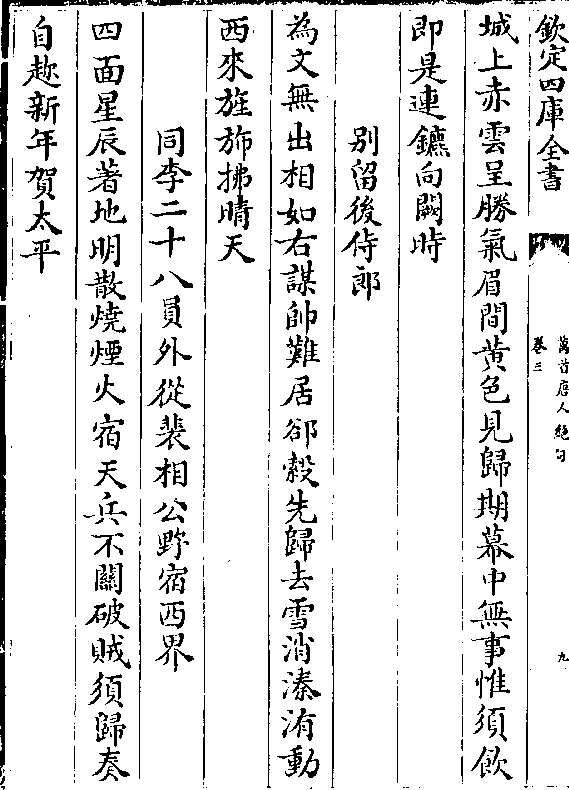 欽定四庫全書
萬首唐人絶句
卷三
九
城上赤雲呈勝氣眉間黄色見歸期幕中無事惟須飲
即是連鑣向闕時
别留後侍郎
為文無出相如右謀帥難居郤縠先歸去雪消溱洧動
西來旌斾拂晴天
同李二十八員外從裴相公野宿西界
四面星辰著地明散燒煙火宿天兵不關破賊須歸奏
自趂新年賀太平